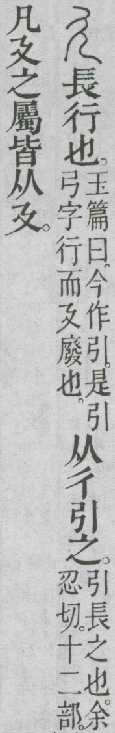 廴長行也。玉篇曰。今作引。是引弓字行而廴廢也。从彳引之。引長之也。余忍切。十二部。
凡廴之屬皆从廴。